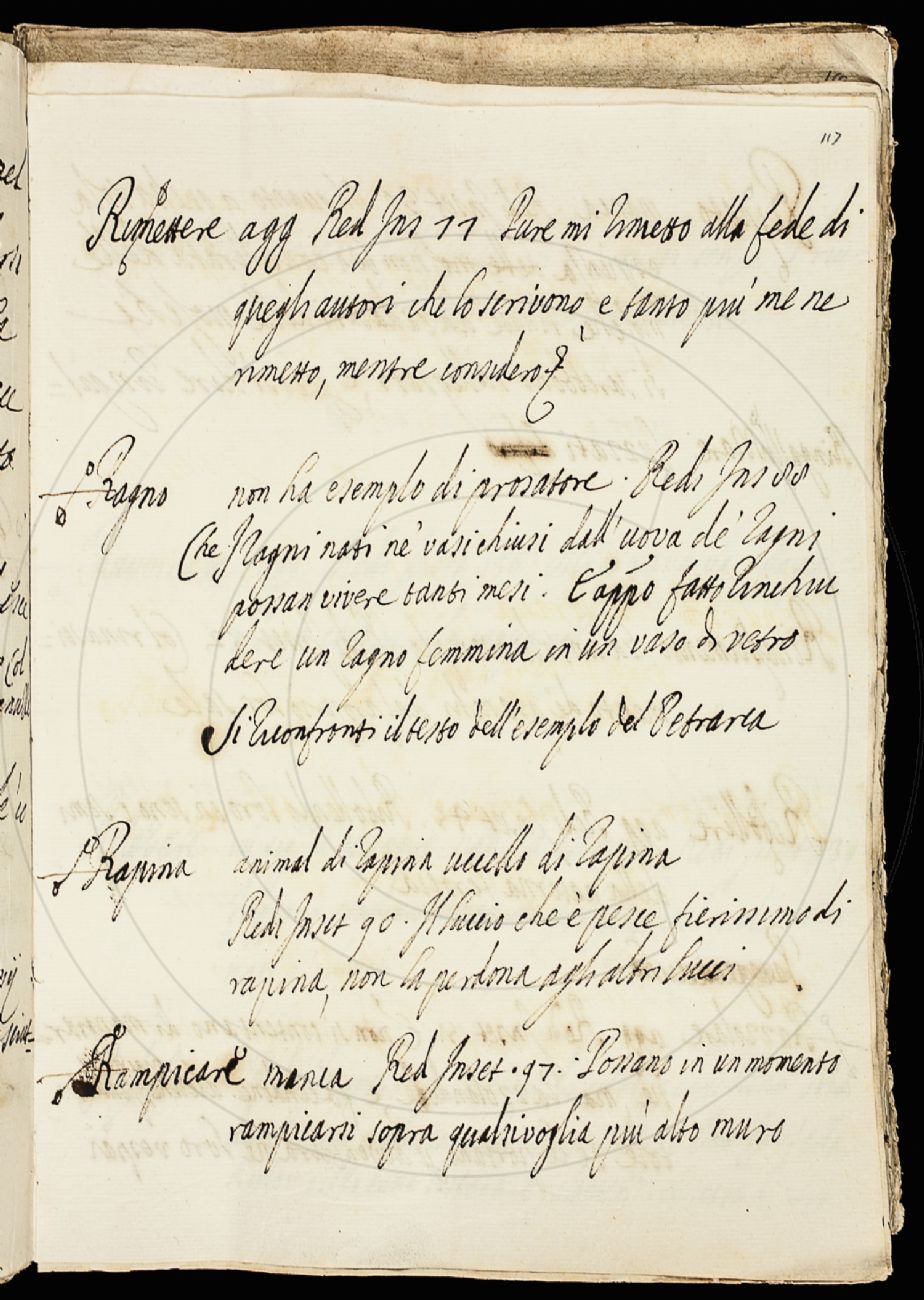 117
Rimettere agg Red Ins 77 Pure mi rimetto alla fede di
quegli autori che lo scrivono e tanto più me ne
rimetto, mentre considero
Ragno non ha esemplo di prosatore. Redi Ins 88
Che I ragni nati ne' vasi chiusi dall'uova de' ragni
possan vivere tanti mesi. E appo fatto rinchiu
dere un ragno femmina in un vaso di vetro
Si riconfronti il testo dell'esemplo del Petrarca
Rapina animal di rapina uccello di rapina
Redi Inset 90. Il luccio che è pesce fierissimo di
rapina, non la perdona agli altri lucci
Rampicare manca Red Inset. 97. Possano in un momento
rampicarsi sopra qualsivoglia più alto muro